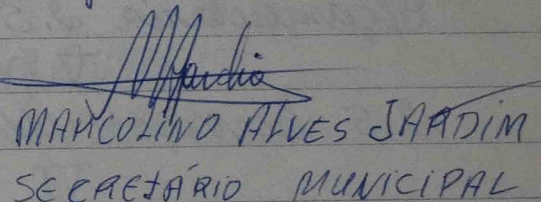 MARCOLINO ALVES JARDIM
SECRETÁRIO MUNICIPAL